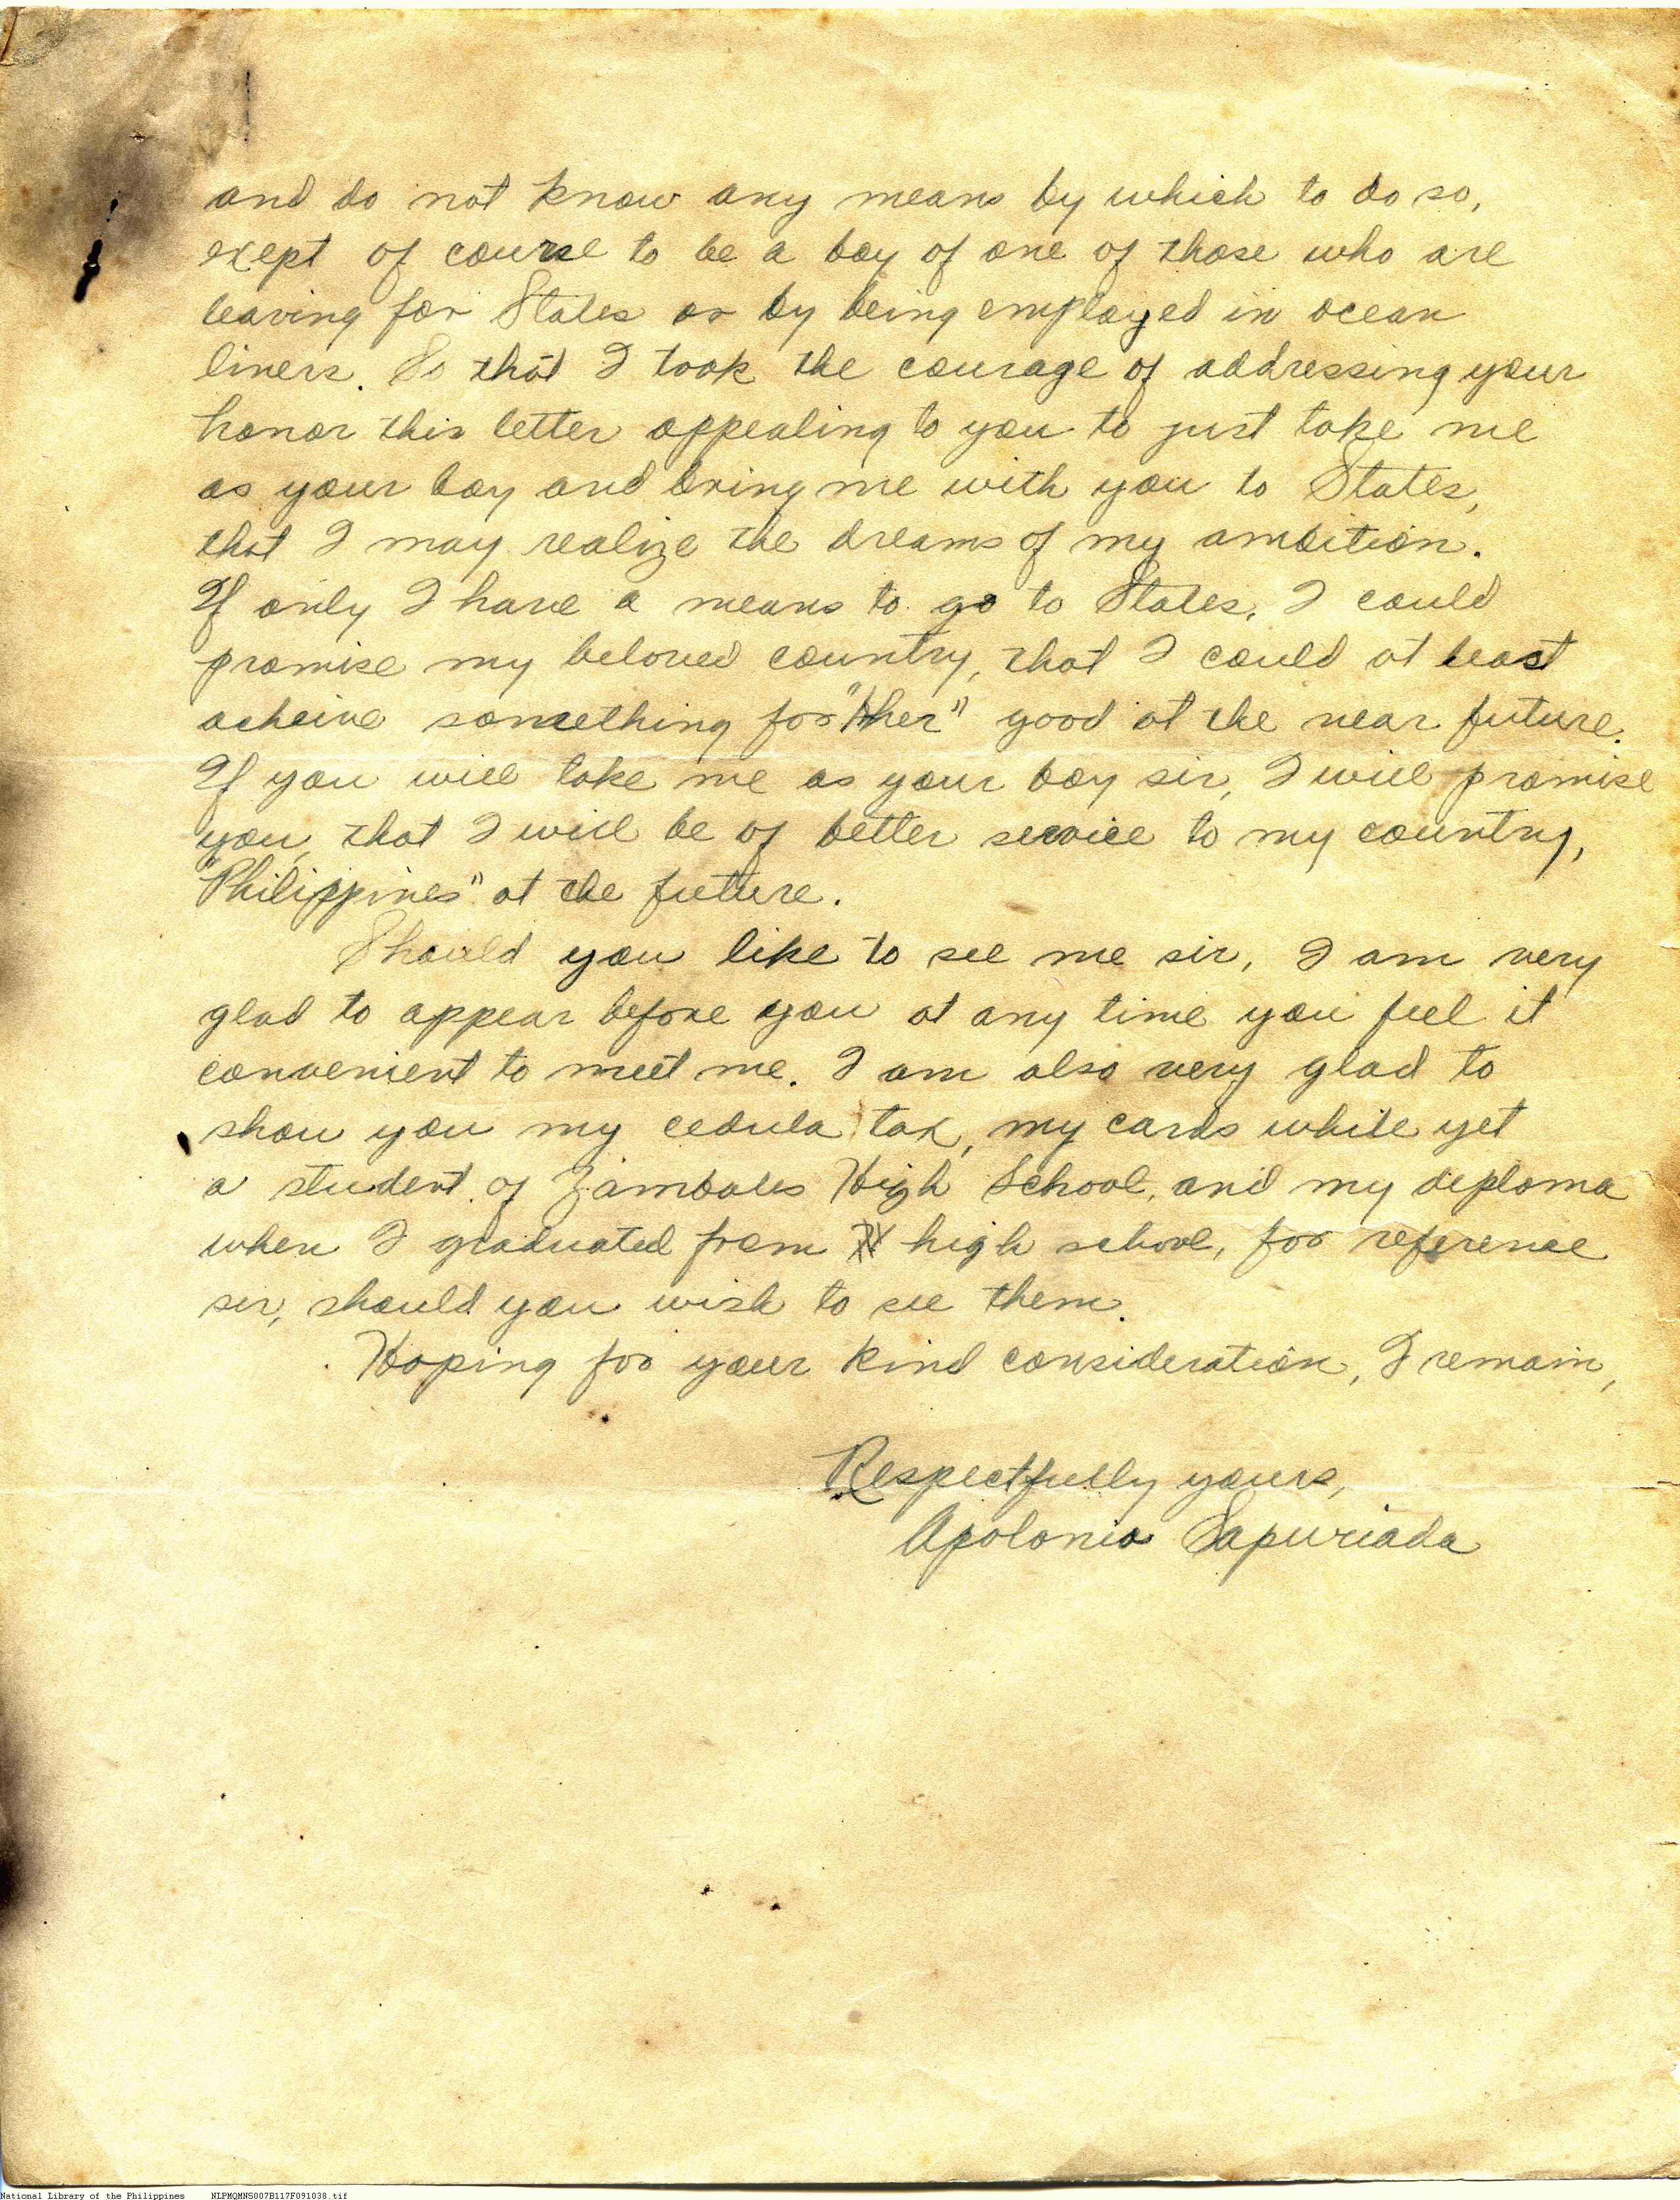 and do not know any means by which to do so,
exept of course to be a boy of one of those who are
leaving for States or by being employed in ocean
liners. So that I took the courage of addressing your
honor this letter appealing to you to just take me
as your boy and bring me with you to States,
that I may realize the dreams of my ambition.
If only I have a means to go to States, I could
promise my beloved country, that I could at least
acheive something for "her" good at the near future.
If you will take me as your boy sir, I will promise
you, that I will be of better service to my country,
"Philippines" at the future.
Should you like to see me sir, I am very
glad to appear before you at any time you feel it
convenient to meet me. I am also very glad to
show you my cedula tax, my cards while yet
a student of Zambales High School, and my diploma
when I graduated from high school, for reference
sir, should you wish to see them.
Hoping for your kind consideration, I remain,
Respectfully yours,
Apolonio Sapuriada
National Library of the Philippines NLPMQMNS007B117F091038.tif